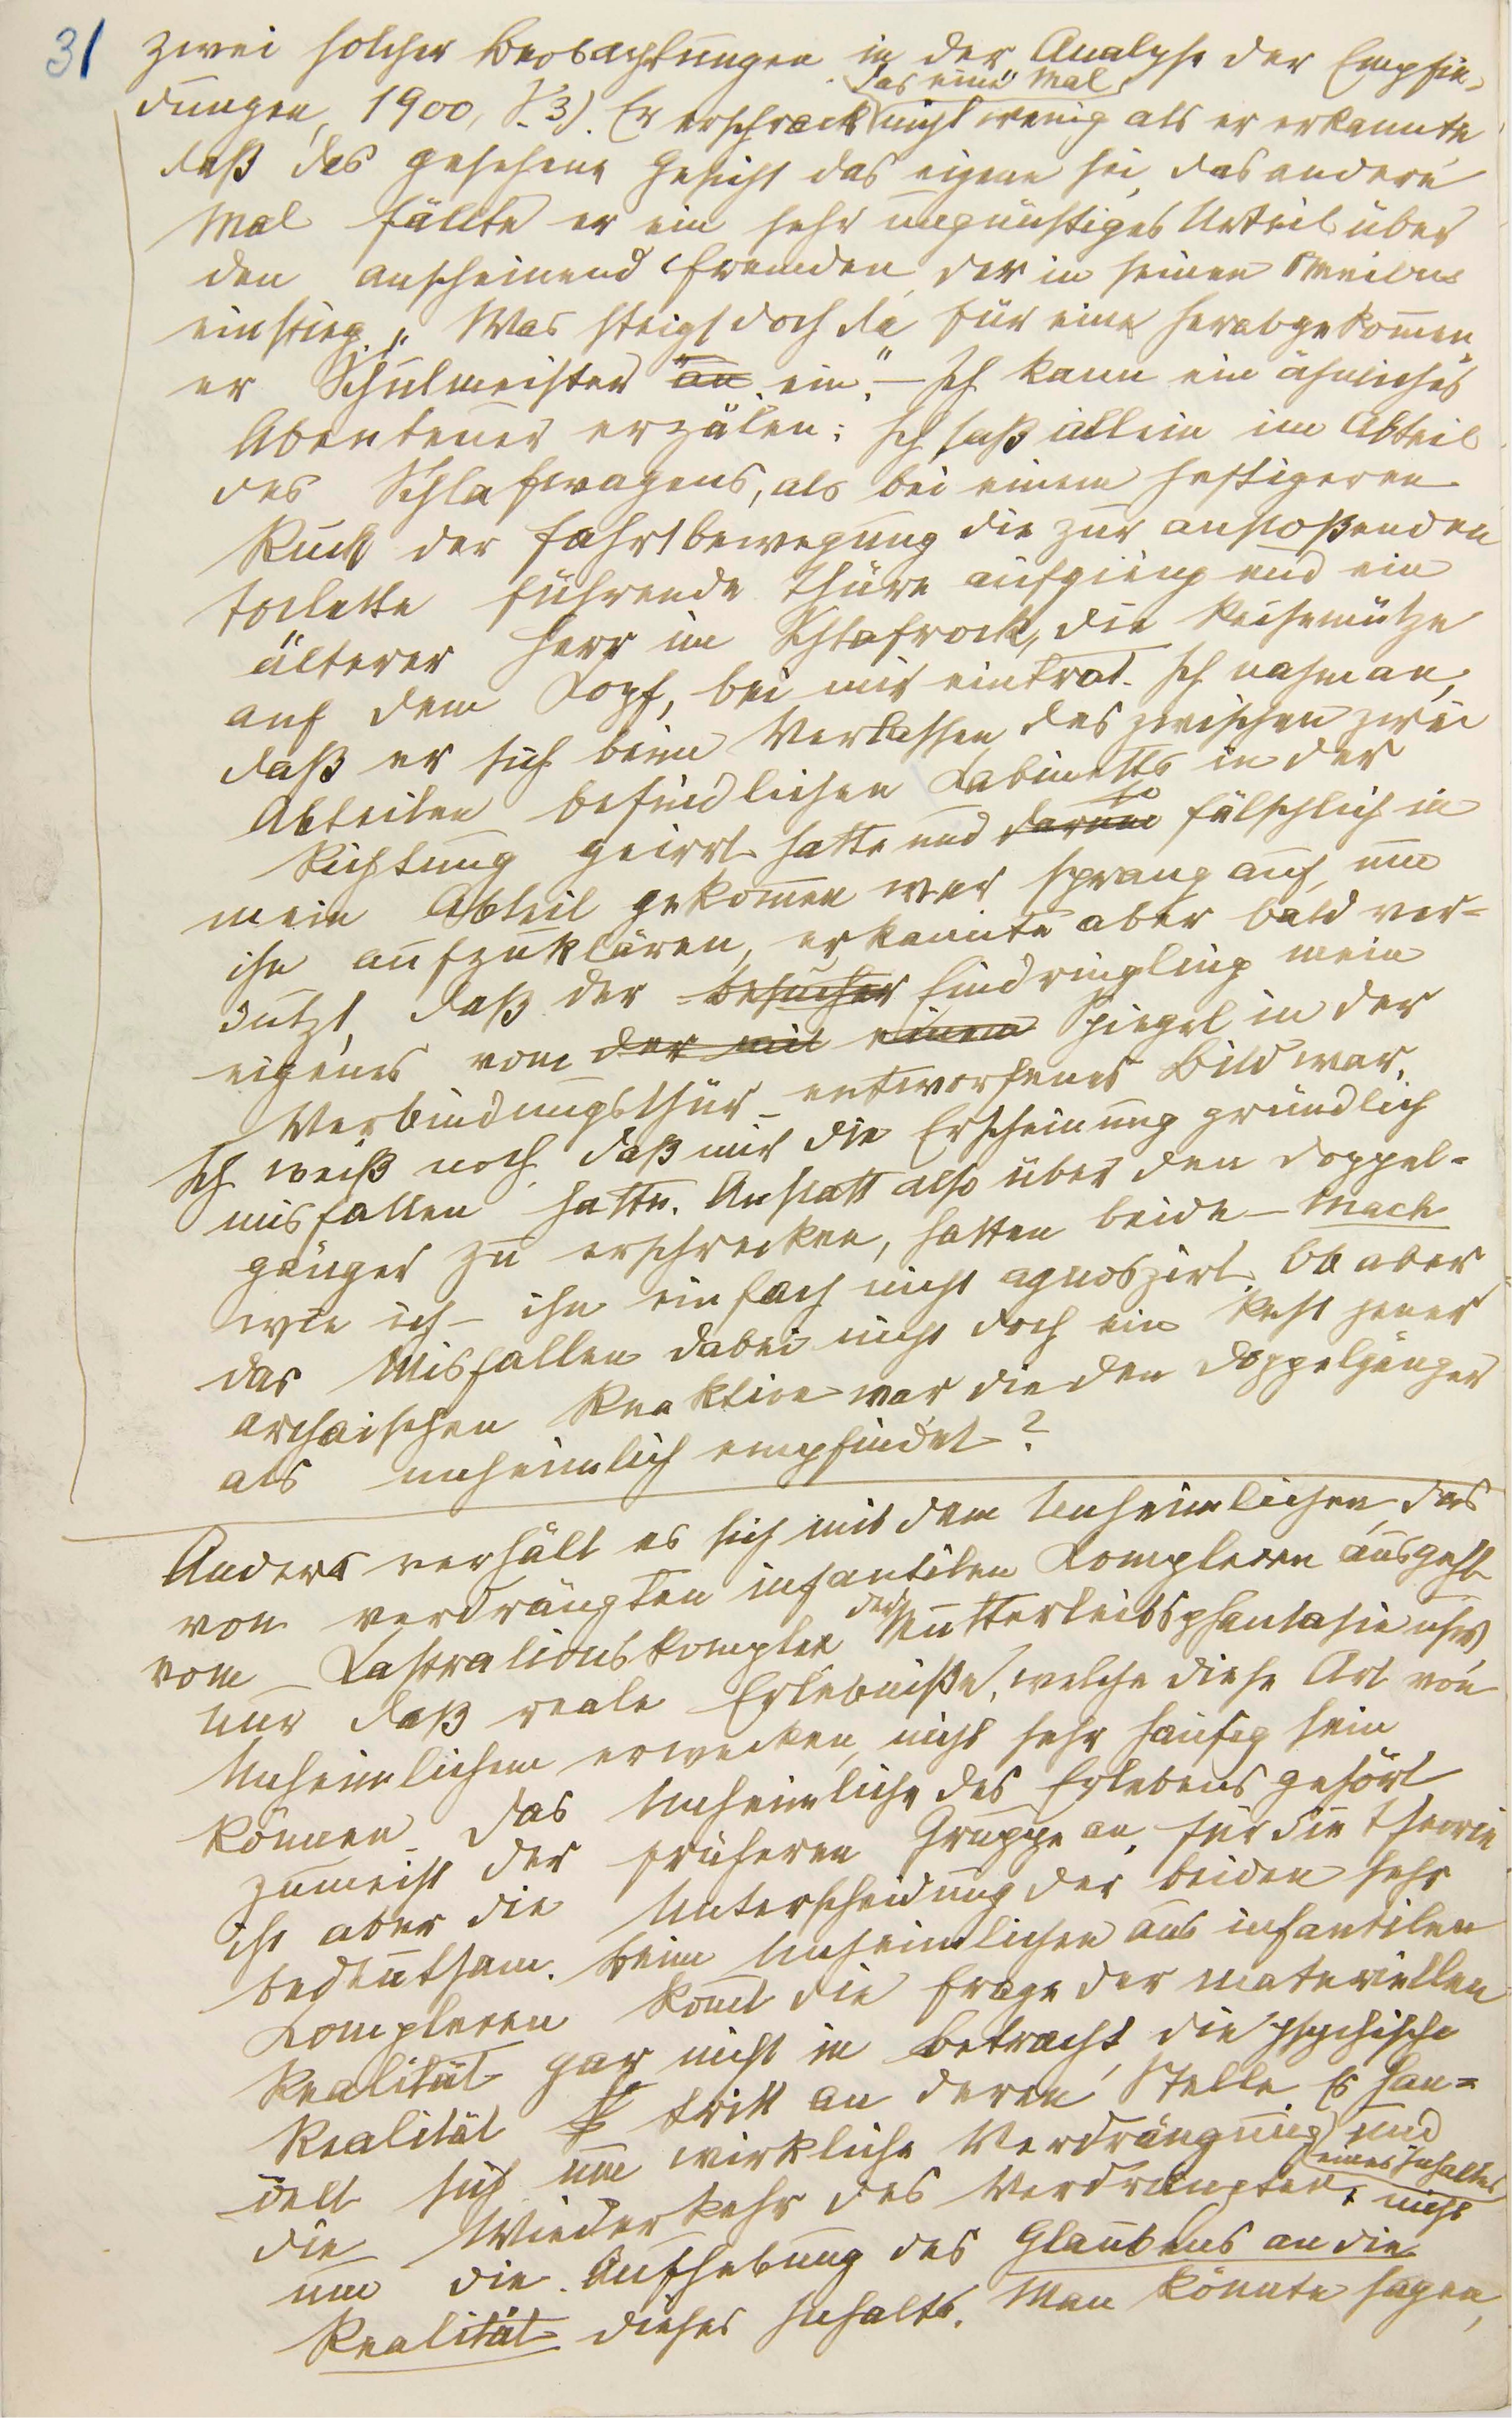 31
zwei solcher Beobachtungen in der „Analyse der Empfin-
das eine Mal
dungen, 1900, S. 3). Er erschrack nicht wenig als er erkannte
daß das gesehene Gesicht das eigene sei, das andere
Mal fällte er ein sehr ungünstiges Urteil über
den anscheinend Fremden, der in seinen
einstieg. „Was steigt doch da für ein herabgekom̄en
er Schulmeister an ein“. — Ich kann ein ähnliches
Abenteuer erzälen: Ich saß allein im Abteil
des Schlafwagens, als bei einem heftigeren
Ruck der Fahrtbewegung die zur anstoßenden
Toilette führende Thüre aufgieng und ein
älterer Herr im Schlafrock, die Reisemütze
auf dem Kopf, bei mir eintrat. Ich nahm an,
daß er sich beim Verlassen des zwischen zwei
Abteilen befindlichen Kabinetts in der
so
Richtung geirrt hatte und darum fälschlich in
mein Abteil gekom̄en war, sprang auf, um
ihn aufzuklären, erkannte aber bald ver-
dutzt, daß der Besucher Eindringling mein
eigenes vom der mit einem Spiegel in der
Verbindungsthür entworfenes Bild war.
Ich weiß noch, daß mir die Erscheinung gründlich
misfallen hatte. Anstatt also über den Doppel-
gänger zu erschrecken, hatten beide – Mach
wie ich – ihn einfach nicht agnoszirt. Ob aber
das Misfallen dabei nicht doch ein Rest jener
archaischen Reaktion war die den Doppelgänger
als unheimlich empfindet?
Anders verhält es sich mit dem Unheimlichen, das
von verdrängten infantilen Komplexen ausgeht
der
vom Kastrationskomplex Mutterleibsphantasie usw
nur daß reale Erlebniße, welche diese Art von
Unheimlichem erwecken, nicht sehr häufig sein
können. Das Unheimliche des Erlebens gehört
zumeist der früheren Gruppe an, für die Theorie
ist aber die Unterscheidung der beiden sehr
bedeutsam. Beim Unheimlichen aus infantilen
Komplexen kom̄t die Frage der materiellen
Realität gar nicht in Betracht, die psychische
Realität tritt an deren Stelle. Es han-
delt sich um wirkliche Verdrängung und
eines Inhaltes
die Wiederkehr des Verdrängten, nicht
um die Aufhebung des Glaubens an die
Realität dieses Inhalts. Man könnte sagen,